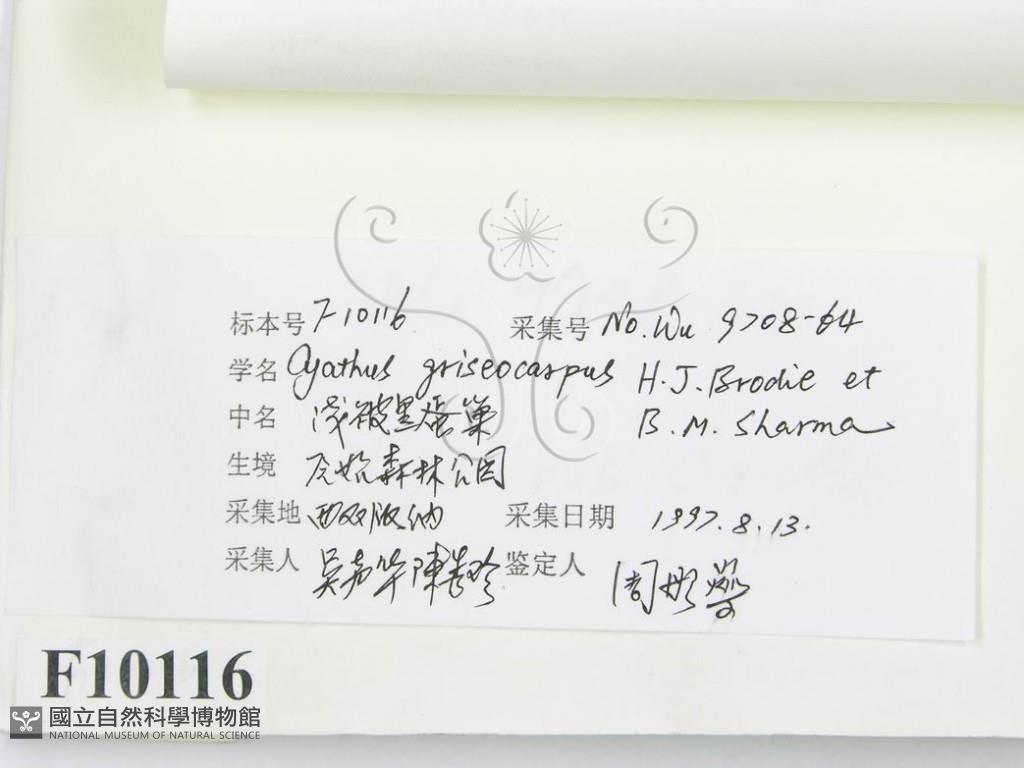 标本号 F10116 采集号 No. Wu 9708-64
学名 Cyathus griseocarpus H.J.Brodie et
中名 浅被黑蛋巢 B.M. Sharma
生境 森林公园
采集地 西双版纳 采集日期 1997.8.13.
采集人 吴 陳 鉴定人 周彤
F10116
國立自然科學博物館
NATIONAL MUSEUM OF NATURAL SCIENCE